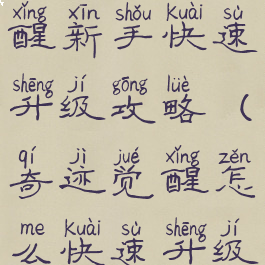 xǐng xīn shǒu kuài sù
醒新手快速
shēng jí gōng lüè
升级攻略（
qí jì jué xǐng zěn
奇迹觉醒怎
me kuài sù shēng jí
么快速升级